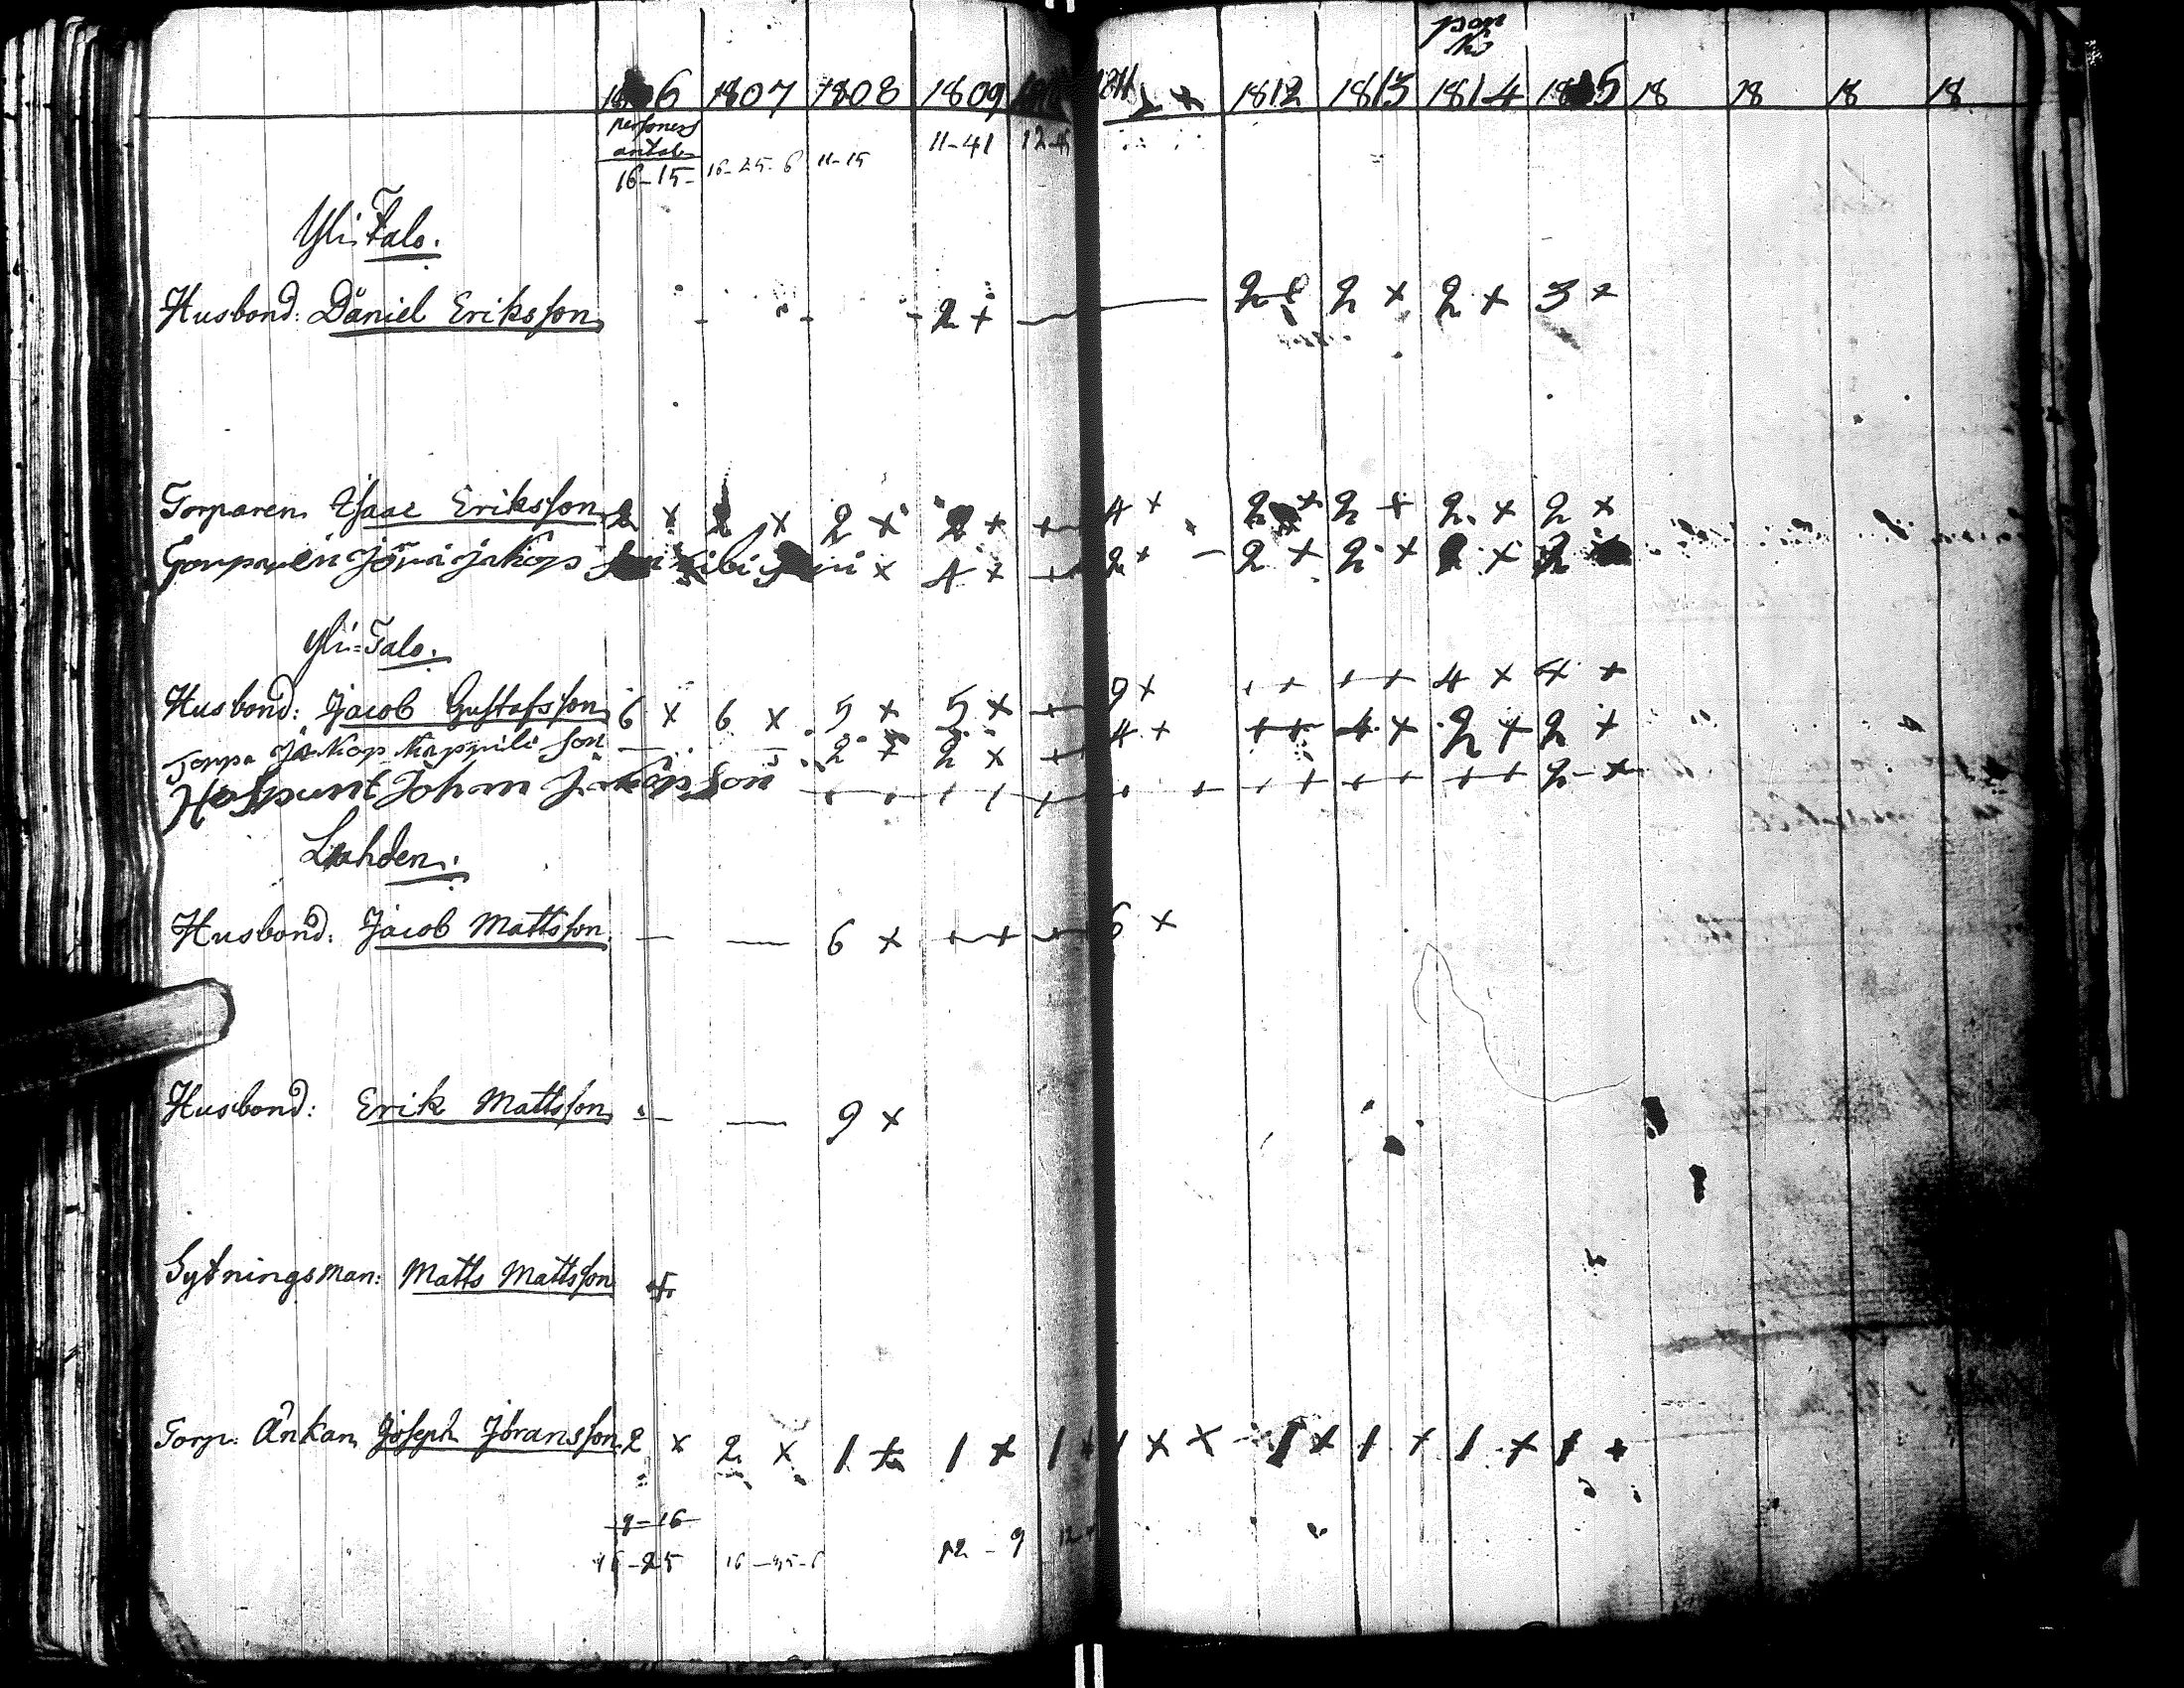 pon
1806 1807 1808 1809 1810 1811 1812 1813 1814 1815 18 18 18 18
personers
antal
16-15- 16-25-6 11-15 11-41 12-
Yli Talo.
Husbond: Daniel Eriksson - - - 2 + — — 2 2 x 2 x 3 x
Torparen Isaac Eriksson 2 x 2 x 2 x 2 x + 4 x 2 x 2 + 2 x 2 x
Torparen Jöran Jakop son x 4 x + 2 x - 2 + 2 x 2 x 2
Yli-Talo.
Husbond: Jacob Gustafsson 6 x 6 x 5 x 5 x + 9 x + + + + 4 x 4 x
Torpa Jakop son — — 2 x 2 x + 4 x + + 4 x 2 x 2 x
Johan Jakopson + + + + + + + + + + 2 x
Lahden.
Husbond: Jacob Mattsson — — 6 x + + + 6 x
Husbond: Erik Mattsson — — 9 x
Sytningsman: Matts Mattsson
Torp: Änkan Joseph Jöransson 2 x 2 x 1 x 1 x 1 x 1 x x 1 x 1 x 1 x 1 x
9-16
16-25 16-25-6 12-9 12-